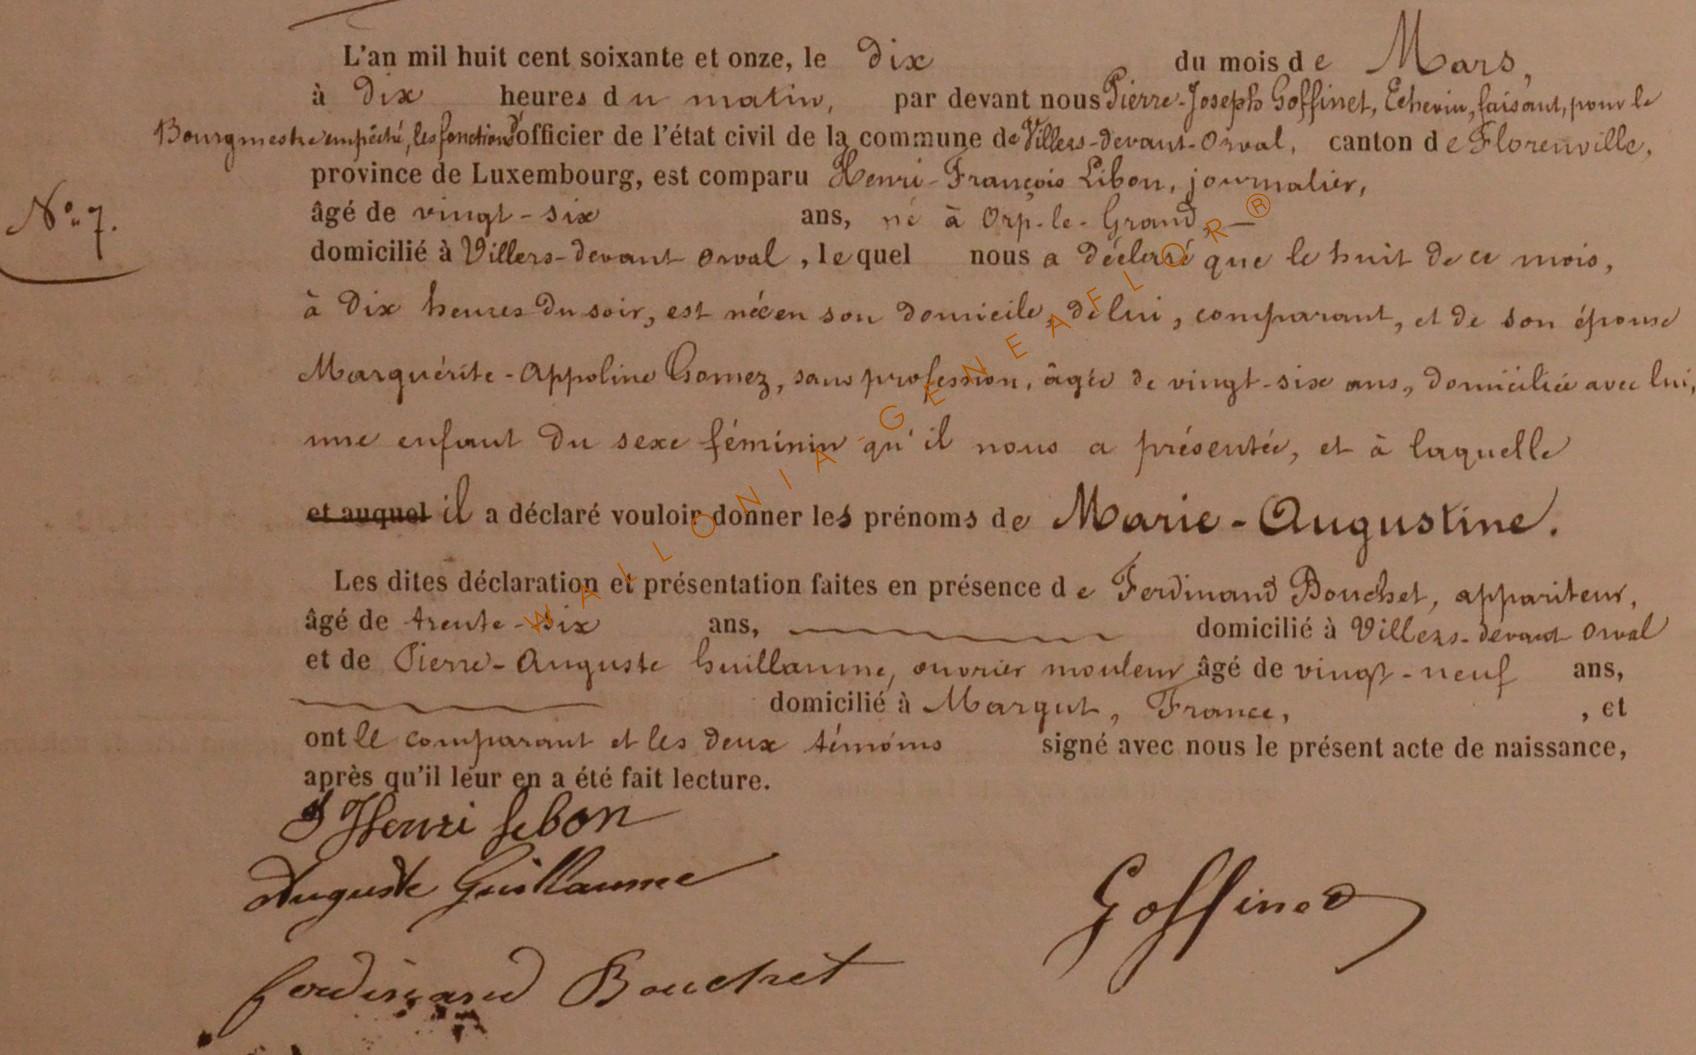 L'an mil huit cent soixante et onze, le dix du mois de Mars,
à dix heures du matin, par devant nous Pierre-Joseph Goffinet, Echevin, faisant, pour le
Bourgmestre empêché, les fonctions d'officier de l'état civil de la commune de Villers-devant-Orval, canton de Florenville,
province de Luxembourg, est comparu Henri-François Libon, journalier,
N.º 7.
âgé de vingt-six ans, né à Orp-le-Grand,
domicilié à Villers-devant Orval, lequel nous a déclaré que le huit de ce mois,
à dix heures du soir, est née en son domicile, de lui, comparant, et de son épouse
Marguérite-Appoline Gomez, sans profession, âgée de vingt-six ans, domiciliée avec lui,
une enfant du sexe féminin qu'il nous a présentée, et à laquelle
et auquel il a déclaré vouloir donner les prénoms de Marie-Augustine.
Les dites déclaration et présentation faites en présence de Ferdinand Bouchet, appariteur,
âgé de trente-dix ans, domicilié à Villers-devant Orval
et de Pierre-Auguste Guillaume, ouvrier mouleur âgé de vingt-neuf ans,
domicilié à Margut, France, , et
ont le comparant et les deux témoins signé avec nous le présent acte de naissance,
après qu'il leur en a été fait lecture.
Henri Libon
Auguste Guillaume
Goffinet
Ferdinand Bouchet
WALLONIA-GENEAFLOR®